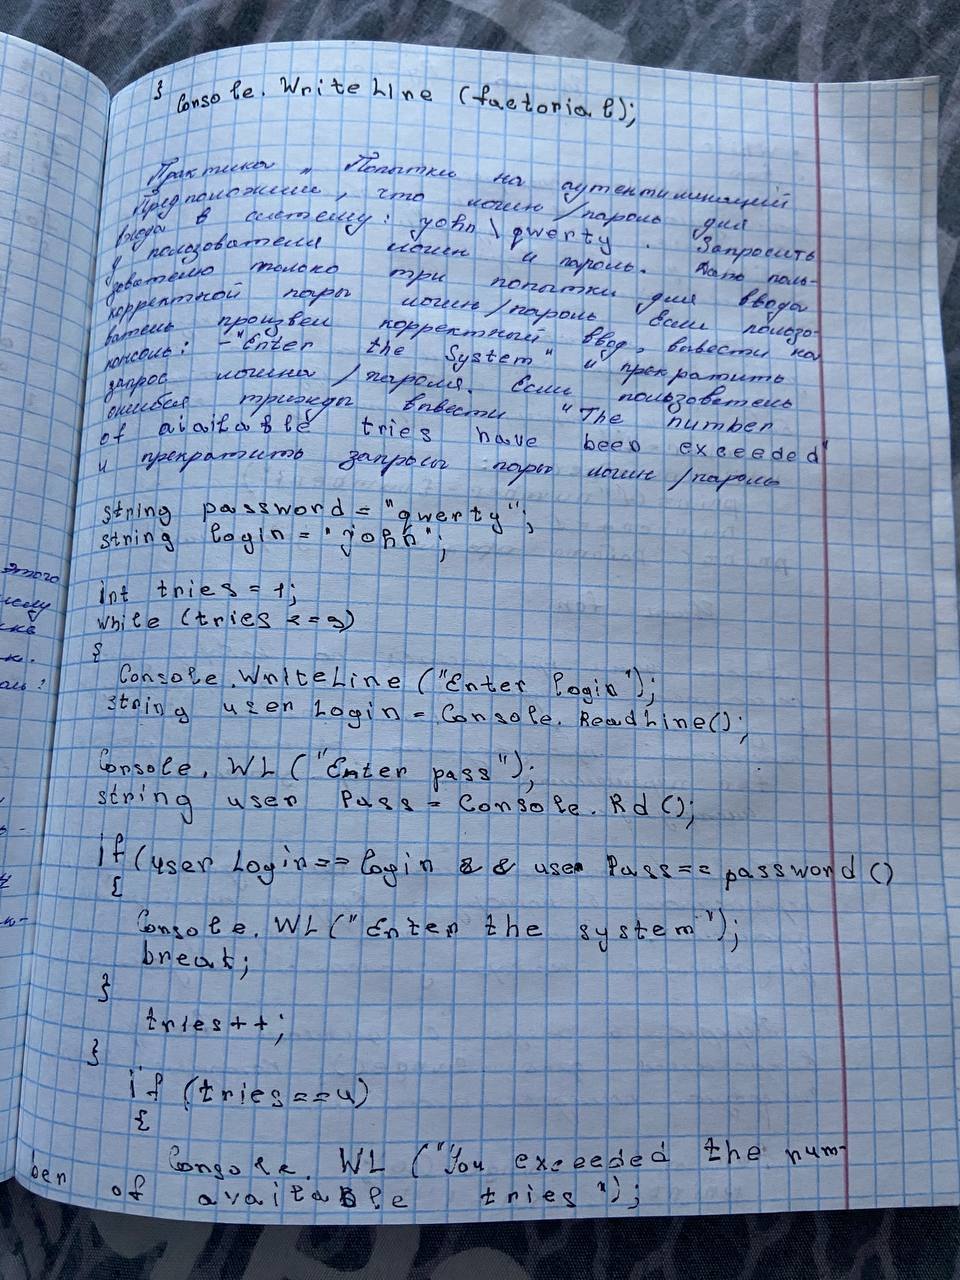 }
Console.WriteLine (factorial);
Практика „ Попытки на аутентификацию
Предположим, что логин/пароль для
входа в систему: john\qwerty. Запросить
у пользователя логин и пароль. Дать поль-
зователю только три попытки для ввода
корректной пары логин/пароль если пользо-
ватель произвел корректный ввод, вывести на
консоль: -"Enter the System" и прекратить
запрос логина/пароля. Если пользователь
ошибся трижды вывести "The number
of aiaitable tries have been exceeded"
и прекратить запросы пары логин/пароль
string password = "qwerty";
string login = "john";
int tries = 1;
while (tries <= 3)
{
Console.WriteLine ("Enter login");
string user Login = Console.ReadLine();
Console. WL ("Enter pass");
string user Pass = Console.Rd ();
if (user Login == login && user Pass == password ()
{
Console. WL ("Enter the system");
break;
}
tries++;
}
if (tries == 4)
{
Console. WL ("You exceeded the num-
ber of available tries");
этого
ль?